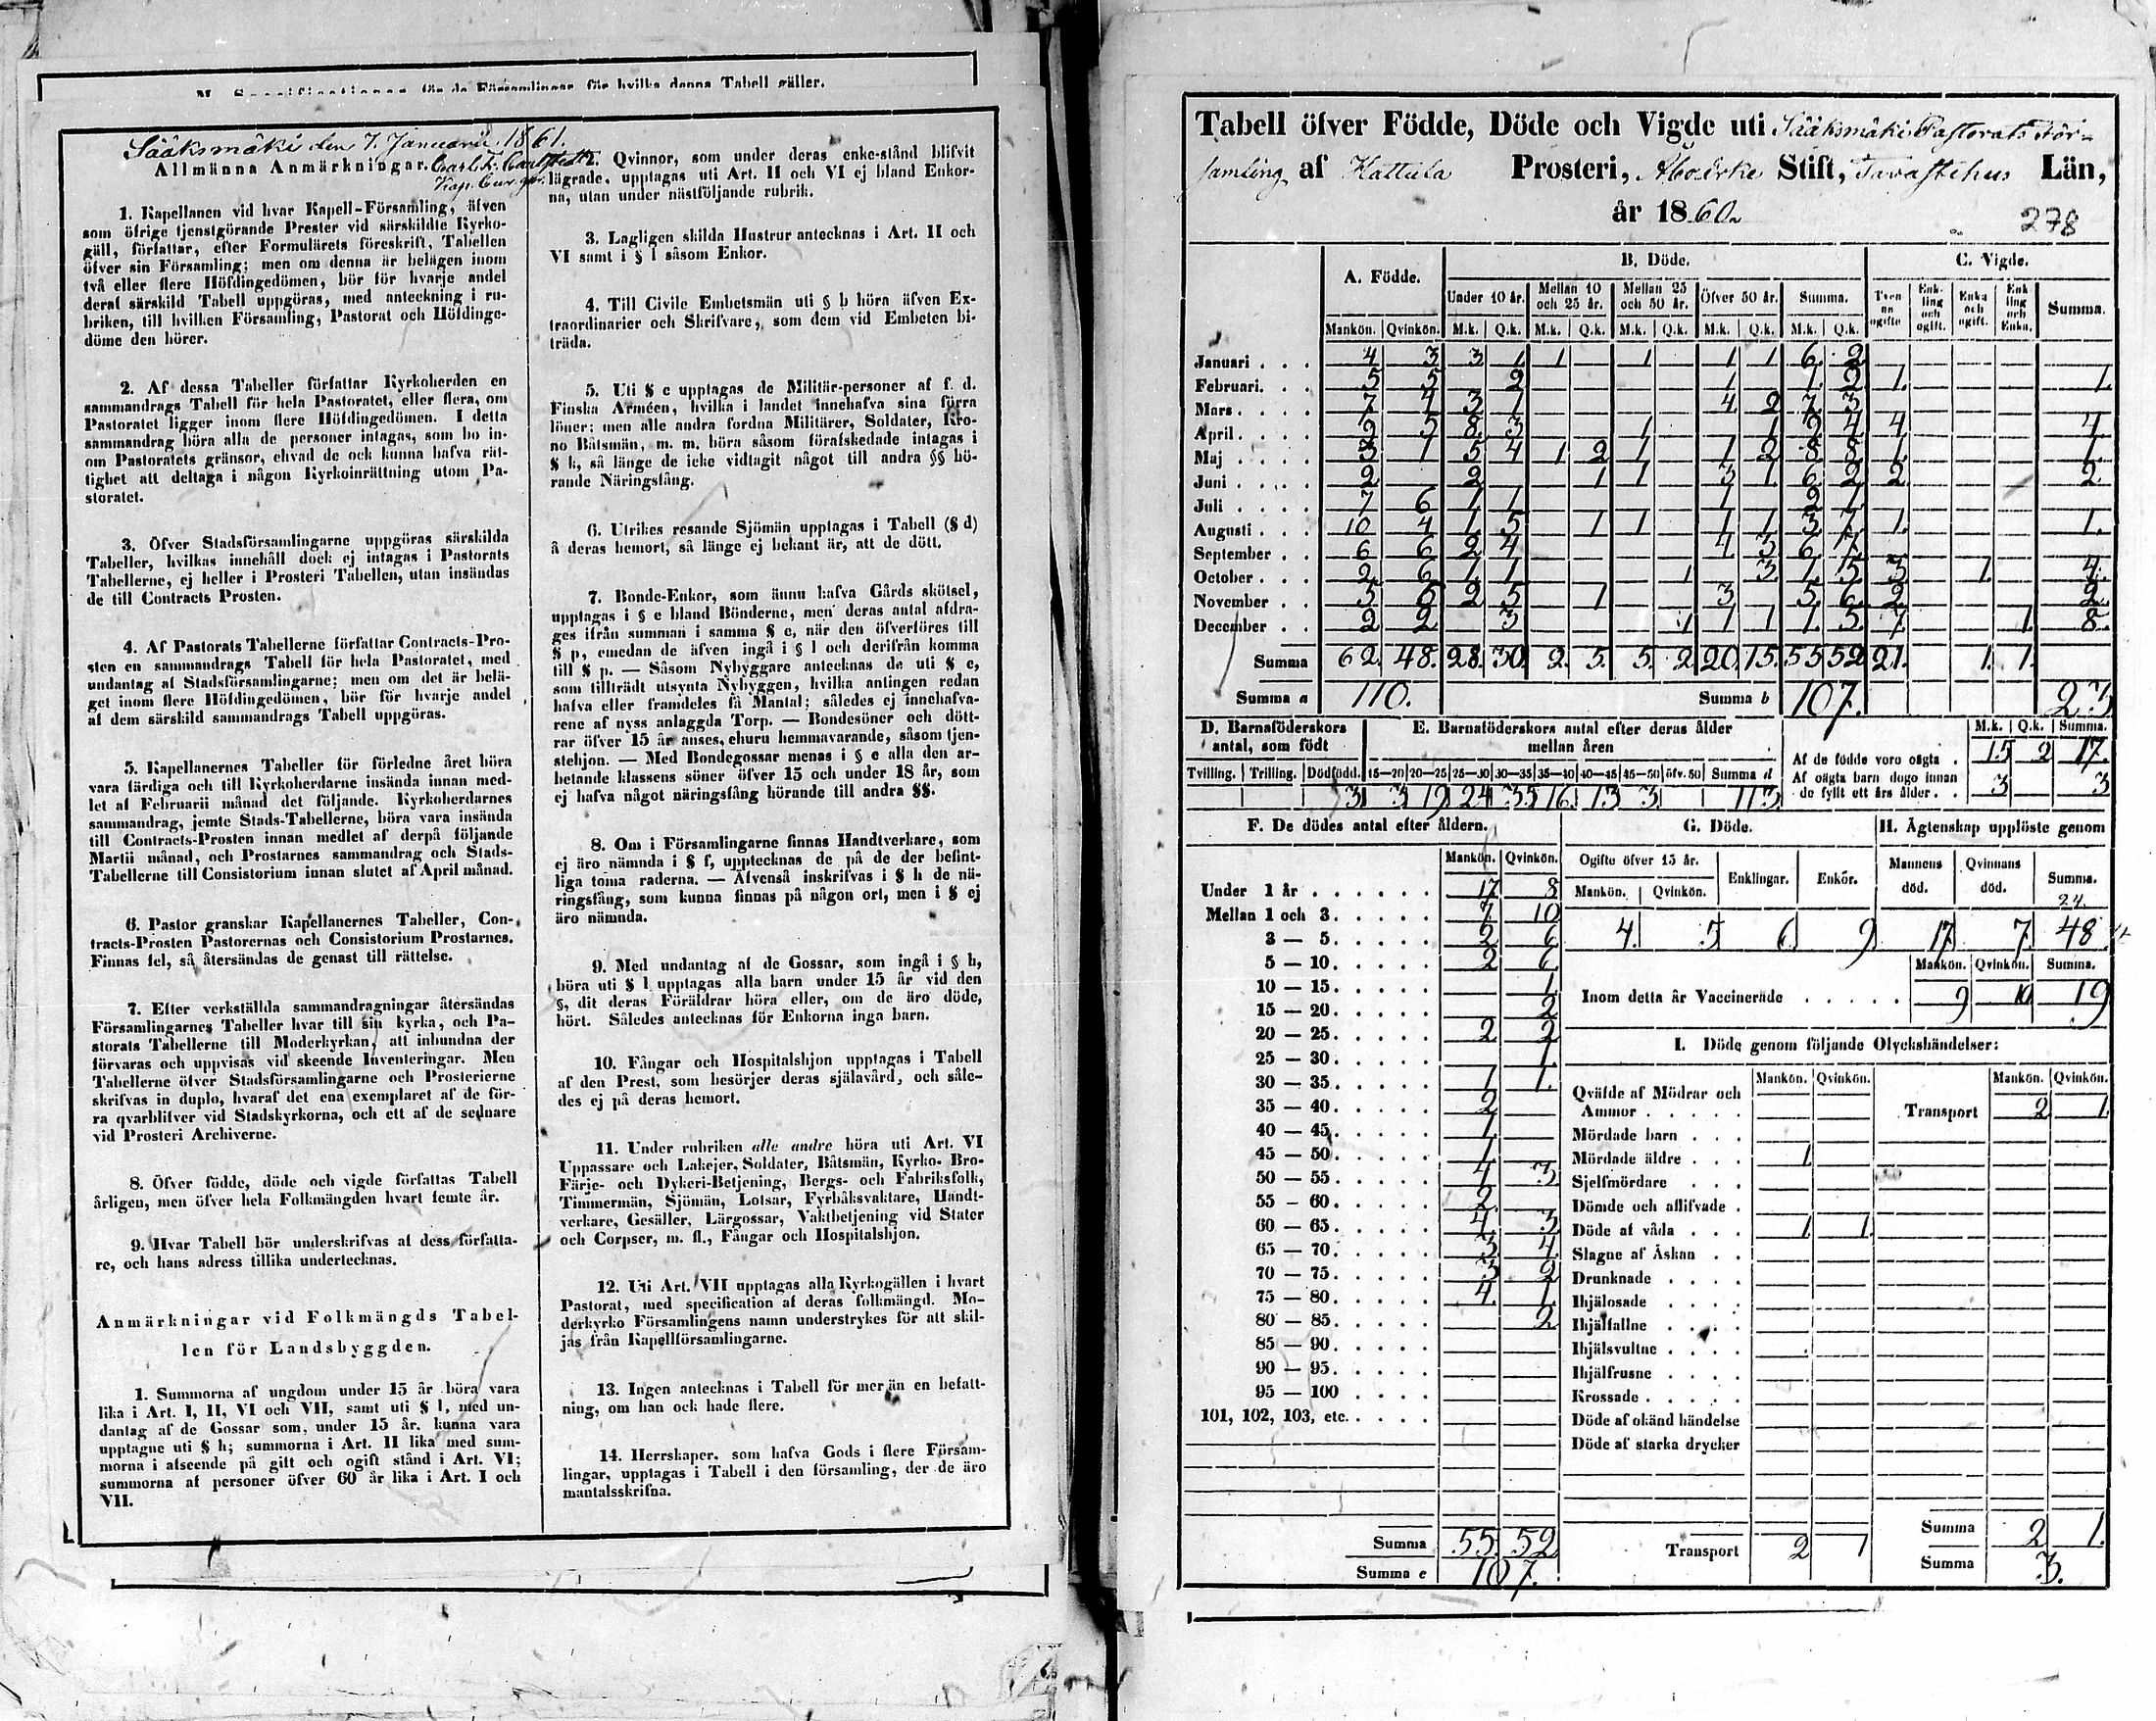 M. Specificationer för de Församlingar för hvilka denna Tabell gäller.
Sääksmäki den 7. Januarii 1861.
Allmänna Anmärkningar.
1. Kapellanen vid hvar Kapell-Församling, äfven
som öfrige tjenstgörande Prester vid särskildte Kyrko-
gäll, författar, efter Formulärets föreskrift, Tabellen
öfver sin Församling; men om denna är belägen inom
två eller flere Höfdingedömen, bör för hvarje andel
deraf särskild Tabell uppgöras, med anteckning i ru-
briken, till hvilken Församling, Pastorat och Höfdinge-
döme den hörer.
2. Af dessa Tabeller författar Kyrkoherden en
sammandrags Tabell för hela Pastoratet, eller flera, om
Pastoratet ligger inom flere Höfdingedömen. I detta
sammandrag böra alla de personer intagas, som bo in-
om Pastoratets gränsor, ehvad de ock kunna hafva rät-
tighet att deltaga i någon Kyrkoinrättning utom Pa-
storatet.
3. Öfver Stadsförsamlingarne uppgöras särskilda
Tabeller, hvilkas innehåll dock ej intagas i Pastorats
Tabellerne, ej heller i Prosteri Tabellen, utan insändas
de till Contracts Prosten.
4. Af Pastorats Tabellerne författar Contracts-Pro-
sten en sammandrags Tabell för hela Pastoratet, med
undantag af Stadsförsamlingarne; men om det är belä-
get inom flere Höfdingedömen, bör för hvarje andel
af dem särskild sammandrags Tabell uppgöras.
5. Kapellanernes Tabeller för förledne året böra
vara färdiga och till Kyrkoherdarne insända innan med-
let af Februarii månad det följande. Kyrkoherdarnes
sammandrag, jemte Stads-Tabellerne, böra vara insända
till Contracts-Prosten innan medlet af derpå följande
Martii månad, och Prostarnes sammandrag och Stads-
Tabellerne till Consistorium innan slutet af April månad.
6. Pastor granskar Kapellanernes Tabeller, Con-
tracts-Prosten Pastorernas och Consistorium Prostarnes.
Finnas fel, så återsändas de genast till rättelse.
7. Efter verkställda sammandragningar återsändas
Församlingarnes Tabeller hvar till sin kyrka, och Pa-
storats Tabellerne till Moderkyrkan, att inbundna der
förvaras och uppvisas vid skeende Inventeringar. Men
Tabellerne öfver Stadsförsamlingarne och Prosterierne
skrifvas in duplo, hvaraf det ena exemplaret af de för-
ra qvarblifver vid Stadskyrkorna, och ett af de sednare
vid Prosteri Archiverne.
8. Öfver födde, döde och vigde författas Tabell
årligen, men öfver hela Folkmängden hvart femte år.
9. Hvar Tabell bör underskrifvas af dess författa-
re, och hans adress tillika undertecknas.
Anmärkningar vid Folkmängds Tabel-
len för Landsbyggden.
1. Summorna af ungdom under 15 år böra vara
lika i Art. I, II, VI och VII, samt uti § l, med un-
dantag af de Gossar som, under 15 år, kunna vara
upptagne uti § h; summorna i Art. II lika med sum-
morna i afseende på gift och ogift stånd i Art. VI;
summorna af personer öfver 60 år lika i Art. I och
VII.
2. Qvinnor, som under deras enke-stånd blifvit
lägrade, upptagas uti Art. II och VI ej bland Enkor-
na, utan under nästföljande rubrik.
3. Lagligen skilda Hustrur antecknas i Art. II och
VI samt i § l såsom Enkor.
4. Till Civile Embetsmän uti § b höra äfven Ex-
traordinarier och Skrifvare, som dem vid Embeten bi-
träda.
5. Uti § c upptagas de Militär-personer af f. d.
Finska Arméen, hvilka i landet innehafva sina förra
löner; men alle andra fordna Militärer, Soldater, Kro-
no Båtsmän, m. m. böra såsom förafskedade intagas i
§ k, så länge de icke vidtagit något till andra §§ hö-
rande Näringsfång.
6. Utrikes resande Sjömän upptagas i Tabell (§ d)
å deras hemort, så länge ej bekant är, att de dött.
7. Bonde-Enkor, som ännu hafva Gårds skötsel,
upptagas i § e bland Bönderne, men deras antal afdra-
ges ifrån summan i samma § e, när den öfverföres till
§ p, emedan de äfven ingå i § l och derifrån komma
till § p. — Såsom Nybyggare antecknas de uti § e,
som tillträdt utsynta Nybyggen, hvilka antingen redan
hafva eller framdeles få Mantal; således ej innehafva-
rene af nyss anlaggda Torp. — Bondesöner och dött-
rar öfver 15 år anses, ehuru hemmavarande, såsom tjen-
stehjon. — Med Bondegossar menas i § e alla den ar-
betande klassens söner öfver 15 och under 18 år, som
ej hafva något näringsfång hörande till andra §§.
8. Om i Församlingarne finnas Handtverkare, som
ej äro nämnda i § f, upptecknas de på de der befint-
liga toma raderna. — Äfvenså inskrifvas i § h de nä-
ringsfång, som kunna finnas på någon ort, men i § ej
äro nämnda.
9. Med undantag af de Gossar, som ingå i § h,
höra uti § l upptagas alla barn under 15 år vid den
§, dit deras Föräldrar höra eller, om de äro döde,
hört. Således antecknas för Enkorna inga barn.
10. Fångar och Hospitalshjon upptagas i Tabell
af den Prest, som besörjer deras själavård, och såle-
des ej på deras hemort.
11. Under rubriken alle andre höra uti Art. VI
Uppassare och Lakejer, Soldater, Båtsmän, Kyrko- Bro-
Färje- och Dykeri-Betjening, Bergs- och Fabriksfolk,
Timmermän, Sjömän, Lotsar, Fyrbåksvaktare, Handt-
verkare, Gesäller, Lärgossar, Vaktbetjening vid Stater
och Corpser, m. fl., Fångar och Hospitalshjon.
12. Uti Art. VII upptagas alla Kyrkogällen i hvart
Pastorat, med specification af deras folkmängd. Mo-
derkyrko Församlingens namn understrykes för att skil-
jas från Kapellförsamlingarne.
13. Ingen antecknas i Tabell för mer än en befatt-
ning, om han ock hade flere.
14. Herrskaper, som hafva Gods i flere Församl-
lingar, upptagas i Tabell i den församling, der de äro
mantalsskrifna.
Tabell öfver Födde, Döde och Vigde uti Sääksmäki Pastorats För-
samling af Hattula Prosteri, Åbo Erke Stift, Tavastehus Län,
år 1860.
278
A. Födde. B. Döde. C. Vigde.
Under 10 år. Mellan 10 och 25 år. Mellan 25 och 50 år. Öfver 50 år. Summa. Tven ne ogifte Enkling och ogift. Enka och ogift. Enkling och Enka. Summa.
Mankön. Qvinkön. M.k. Q.k. M.k. Q.k. M.k. Q.k. M.k. Q.k. M.k. Q.k.
Januari 4 3 3 1 1 1 1 1 6 2
Februari 5 5 2 1 1 2 1 1
Mars 7 4 3 1 4 2 7 3
April 9 5 8 3 1 1 9 4 4 4
Maj 3 1 5 4 1 2 1 1 2 8 8 1 1
Juni 2 2 1 1 3 1 6 2 2 2
Juli 7 6 1 1 1 2 1
Augusti 10 4 1 5 1 1 1 1 3 7 1 1
September 6 6 2 4 4 3 6 7
October 2 6 1 1 1 3 1 5 3 1 4
November 5 6 2 5 1 3 5 6 2 2
December 2 2 3 1 1 1 1 5 7 1 8
Summa 62 48 28 30 2 5 5 2 20 15 55 52 21 1 1
Summa a 110. Summa b 107. 23
D. Barnaföderskors antal, som födt
E. Barnaföderskors antal efter deras ålder mellan åren
M.k. Q.k. Summa.
Af de födde voro oägta 15 2 17.
Af oägta barn dogo innan de fyllt ett års ålder 3 3
Tvilling. Trilling. Dödfödd. 15—20 20—25 25—30 30—35 35—40 40—45 45—50 öfv. 50 Summa d
3 3 19 24 35 16 13 3 113
F. De dödes antal efter åldern.
Mankön. Qvinkön.
Under 1 år 17 8
Mellan 1 och 3 7 10
3 — 5 2 6
5 — 10 2 6
10 — 15 1
15 — 20 2
20 — 25 2 2
25 — 30 1
30 — 35 1 1
35 — 40 2
40 — 45 1
45 — 50 1
50 — 55 4 3
55 — 60 2
60 — 65 4 3
65 — 70 3 4
70 — 75 3 2
75 — 80 4 1
80 — 85 2
85 — 90
90 — 95
95 — 100
101, 102, 103, etc.
Summa 55 52
Summa e 107.
G. Döde.
Ogifte öfver 15 år. Enklingar. Enkor.
Mankön. Qvinkön.
4 5 6 9
H. Ägtenskap upplöste genom
Mannens död. Qvinnans död. Summa.
24
17 7 48
Mankön. Qvinkön. Summa.
Inom detta år Vaccinerade 9 10 19
I. Döde genom följande Olyckshändelser:
Mankön. Qvinkön. Mankön. Qvinkön.
Qväfde af Mödrar och Ammor
Transport 2 1
Mördade barn
Mördade äldre 1
Sjelfmördare
Dömde och aflifvade
Döde af våda 1 1
Slagne af Åskan
Drunknade
Ihjälosade
Ihjälfallne
Ihjälsvultne
Ihjälfrusne
Krossade
Döde af okänd händelse
Döde af starka drycker
Transport 2 1
Summa 2 1.
Summa 3.